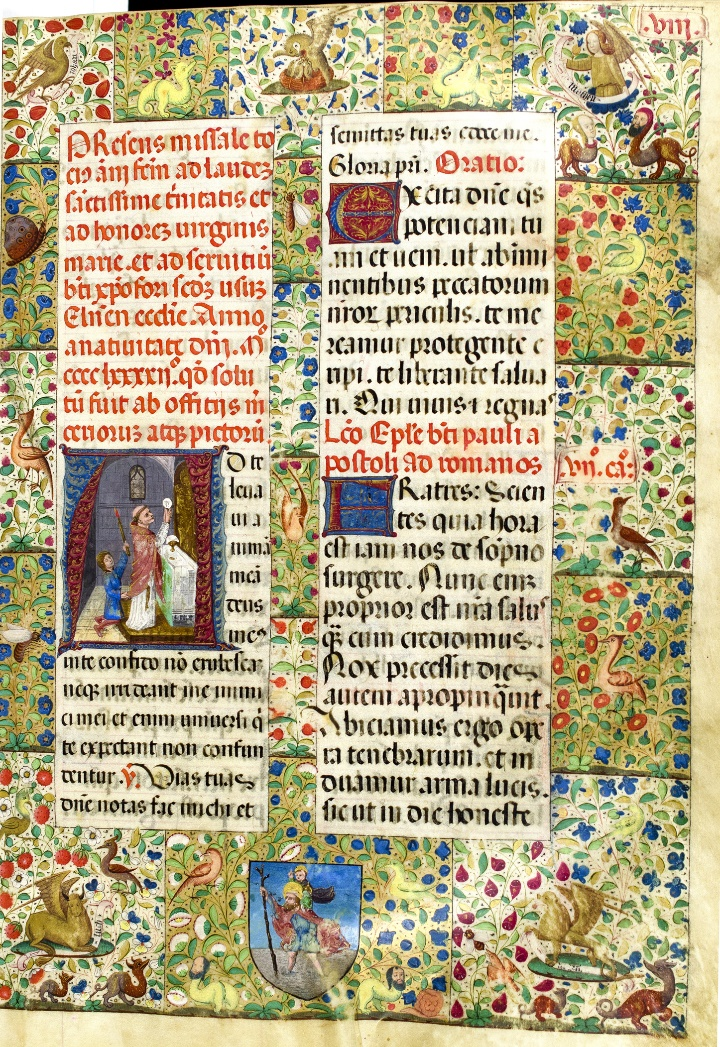 .viii.
PResens missale to
ciꝰ ãni fcm̃ ad laudeꝫ
sãctissime t̃nitatis et
ad honoreꝫ uirginis
marie. et ad seruitiũ
bti xpofori sedꝫ usuꝫ
Elnen ecclie. Anno
a natiuitate dñi. Mº
cccc lxxxxiiº. qò solu
tũ fuit ab officijs m̃
ceriorũ atqꝫ pictorũ.
AD te
leua
ui a
nimã
meã
deus
meꝰ
in te confido nõ erubescaꝫ
neqꝫ irrideant me inimi
ci mei et enim uniuersi q̃
te expectant non confun
dentur. ꝟ. Vias tuas
dñe notas fac michi et
semitas tuas edoce me.
Gloria pr̃i. Oratio:
EXcita dñe q̃s
potenciam tu
am et ueni. ut ab im̃i
nentibus peccatorum
nr̃or̃ periculis. te me
reamur protegente e
ripi. te liberante salua
ri. Qui uiuis ⁊ regnaˢ
Lc̃o Epl̃e bt̃i pauli a
postoli ad romanos
.viiº. ca:
FRatres: Scien
tes quia hora
est iam nos de sõpno
surgere. Nunc eniꝫ
proprior est nr̃a saluˢ
q̃ꝫ cum credidimus.
Nox precessit dies
autem apropinquit.
Abiciamus ergo ope
ra tenebrarum. et in
duamur arma lucis.
sicut in die honeste